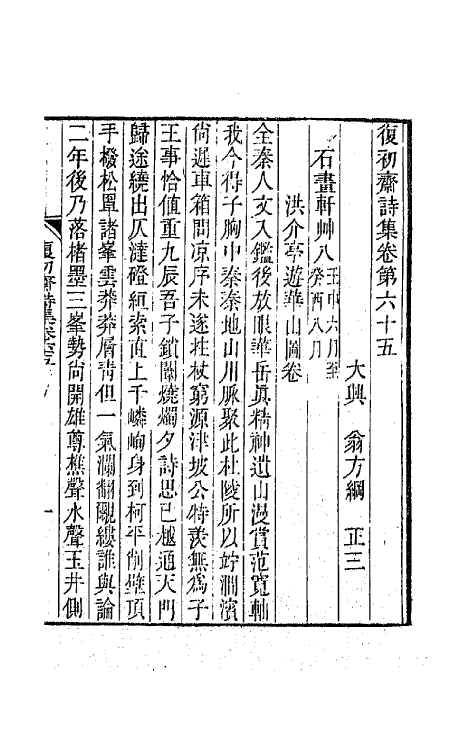 復初齋詩集卷第六十五
大興　翁方綱　正三
石畫軒艸八壬申六月至癸酉八月
洪介亭遊華山圖卷
全秦人文入鑑後放眼華岳眞精神遺山漫賞范寬軸
我今得子胸中秦秦地山川脉聚此杜陵所以竚澗濱
尙遲車箱問凉序未遂拄杖窮源津坡公特羨無爲子
王事恰値重九辰吾子鎖闈燒燭夕詩思已越通天門
歸途繞出仄漨磴絙索直上千嶙峋身到柯平削壁頂
手撥松罩諸峯雲莽莽屑靑但一氣瀾翻覼縷誰與論
二年後乃落楮墨三峯勢尙開雄尊樵聲水聲玉井側
復初齋詩集卷六十五
一